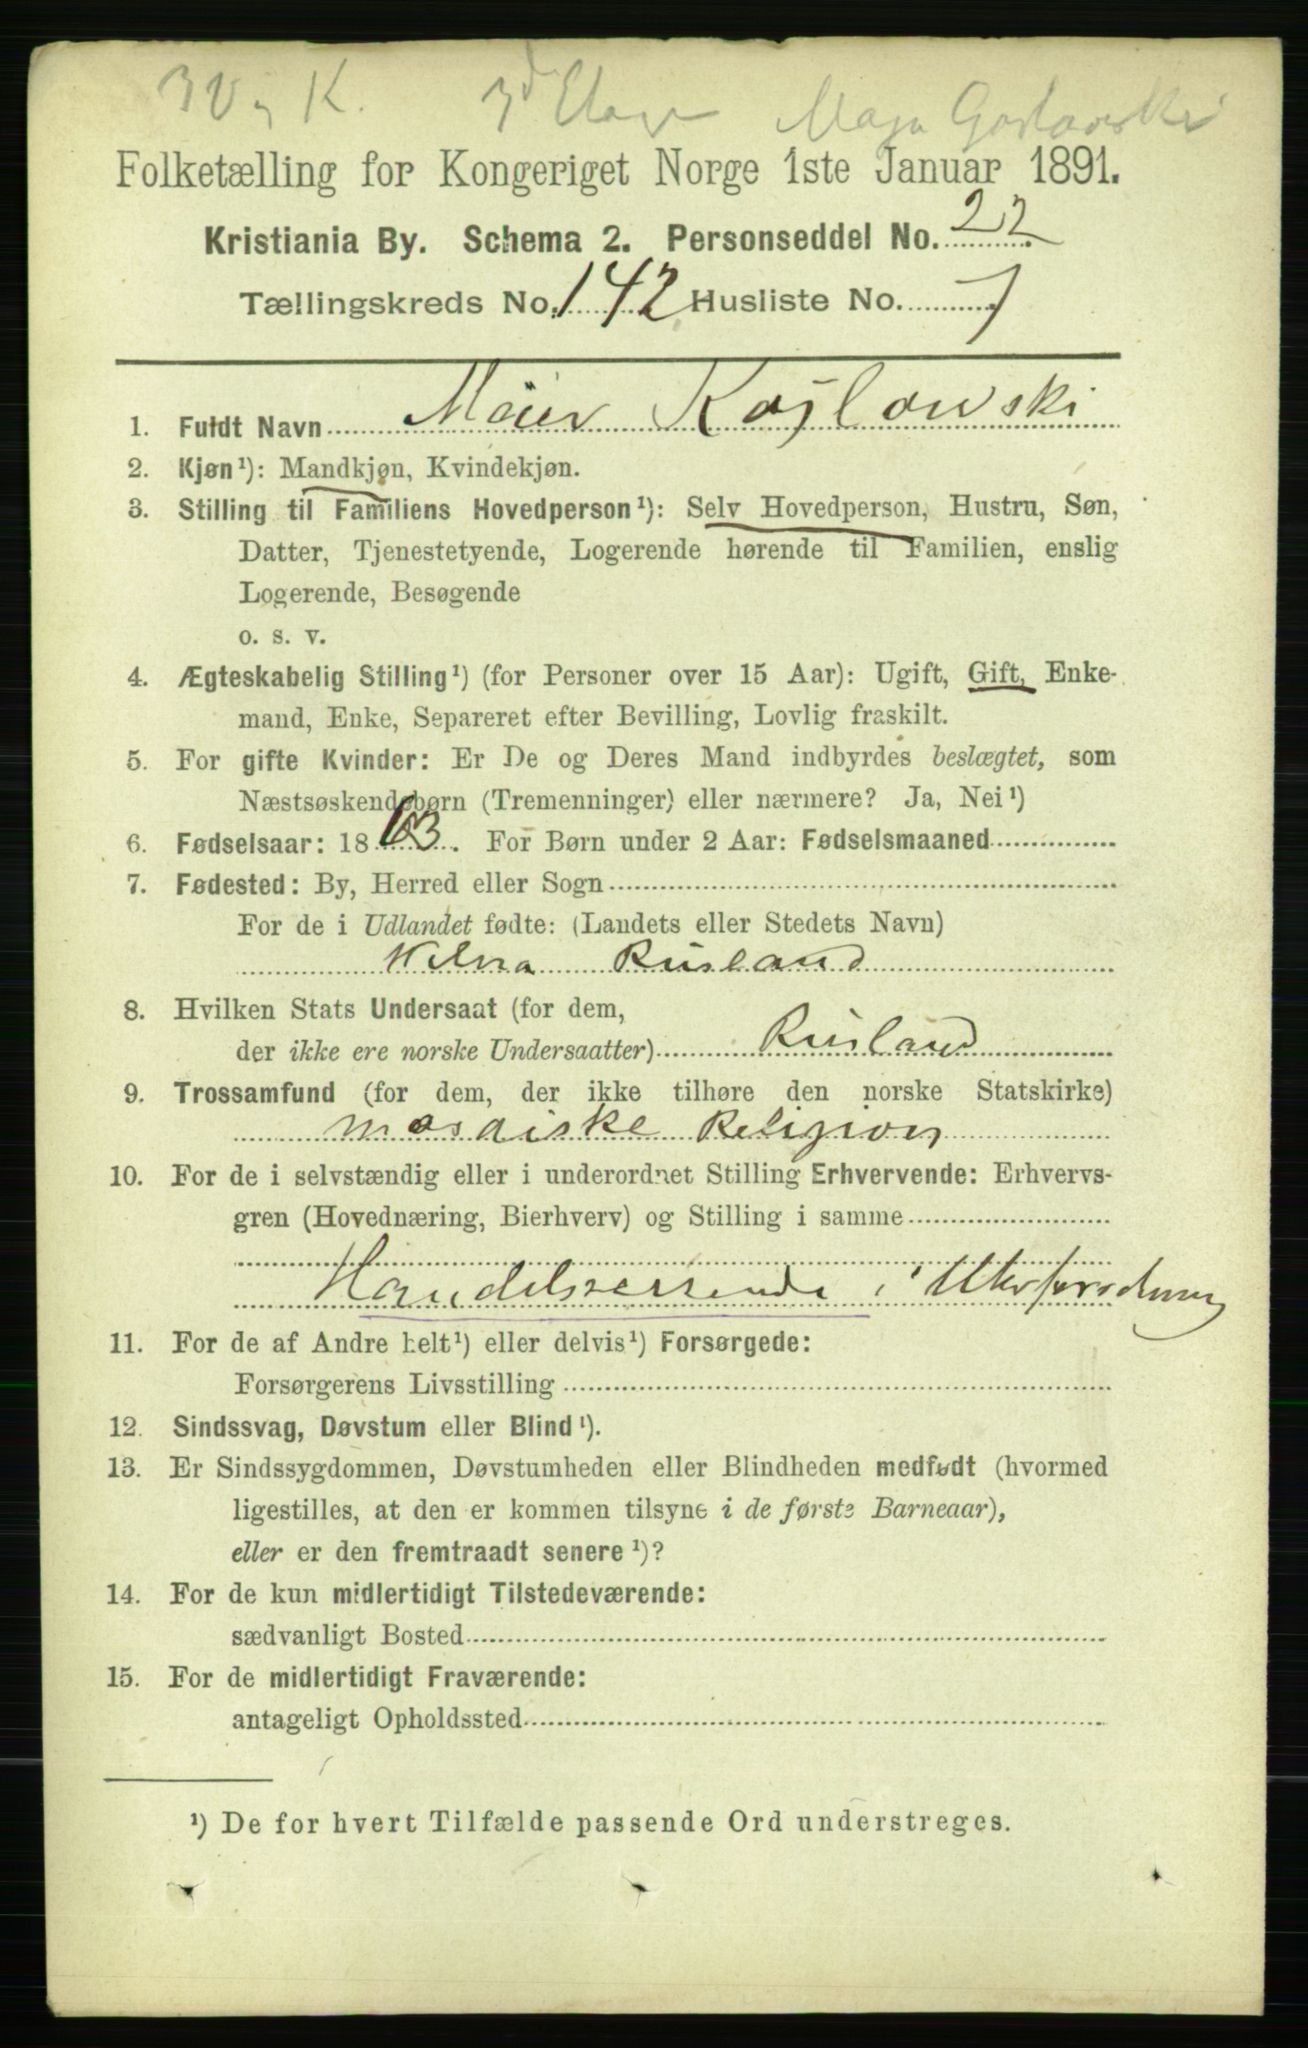 3 V K. 3d Etage
Folketælling for Kongeriget Norge 1ste Januar 1891.
Kristiania By. Schema 2. Personseddel No. 22
Tællingskreds No. 142 Husliste No. 7
1. Fuldt Navn Meier Koslowski
2. Kjøn¹): Mandkjøn, Kvindekjøn.
3. Stilling til Familiens Hovedperson¹): Selv Hovedperson, Hustru, Søn,
Datter, Tjenestetyende, Logerende hørende til Familien, enslig
Logerende, Besøgende
o. s. v.
4. Ægteskabelig Stilling¹) (for Personer over 15 Aar): Ugift, Gift, Enke-
mand, Enke, Separeret efter Bevilling, Lovlig fraskilt.
5. For gifte Kvinder: Er De og Deres Mand indbyrdes beslægtet, som
Næstsøskendebørn (Tremenninger) eller nærmere? Ja, Nei¹)
6. Fødselsaar: 1863. For Børn under 2 Aar: Fødselsmaaned
7. Fødested: By, Herred eller Sogn
For de i Udlandet fødte: (Landets eller Stedets Navn)
Wilna Rusland
8. Hvilken Stats Undersaat (for dem,
der ikke ere norske Undersaatter) Rusland
9. Trossamfund (for dem, der ikke tilhøre den norske Statskirke)
mosaiske Religion
10. For de i selvstændig eller i underordnet Stilling Erhvervende: Erhvervs-
gren (Hovednæring, Bierhverv) og Stilling i samme
Handelsreisende i
11. For de af Andre helt¹) eller delvis¹) Forsørgede:
Forsørgerens Livsstilling
12. Sindssvag, Døvstum eller Blind¹).
13. Er Sindssygdommen, Døvstumheden eller Blindheden medfødt (hvormed
ligestilles, at den er kommen tilsyne i de første Barneaar),
eller er den fremtraadt senere¹)?
14. For de kun midlertidigt Tilstedeværende:
sædvanligt Bosted
15. For de midlertidigt Fraværende:
antageligt Opholdssted
¹) De for hvert Tilfælde passende Ord understreges.